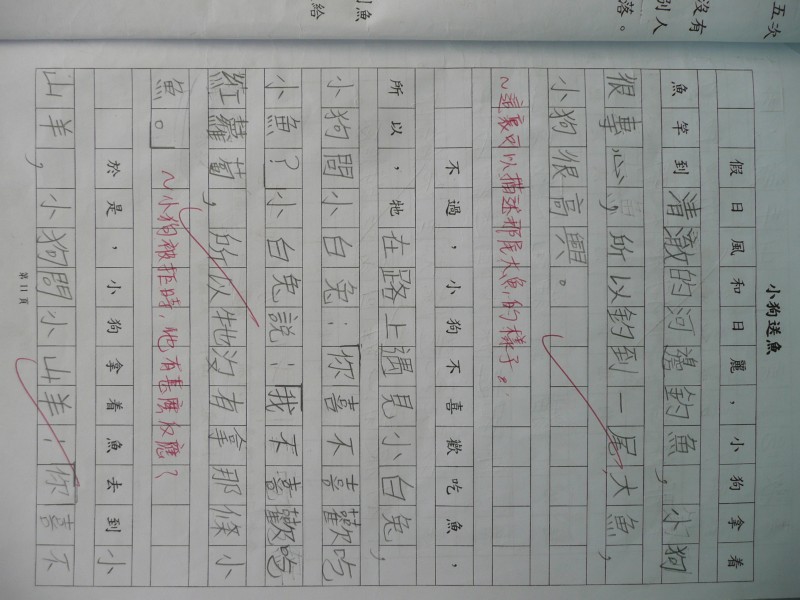 五次
沒有
別人
落。
魚
給
小狗送魚
假日風和日麗，小狗拿着
魚竿到清澈的河邊釣魚，小狗
很專心，所以釣到一尾大魚，
小狗很高興。
~這裏可以描述那尾大魚的樣子。
不過，小狗不喜歡吃魚，
所以，牠在路上遇見小白兔，
小狗問小白兔：「你喜不喜歡吃
小魚？」小白兔說：「我不喜歡吃
紅蘿蔔，所以牠沒有拿那條小
魚。」
~小狗被拒時，他有甚麼反應？
於是，小狗拿着魚去到小
山羊，小狗問小山羊：「你喜不
第11頁